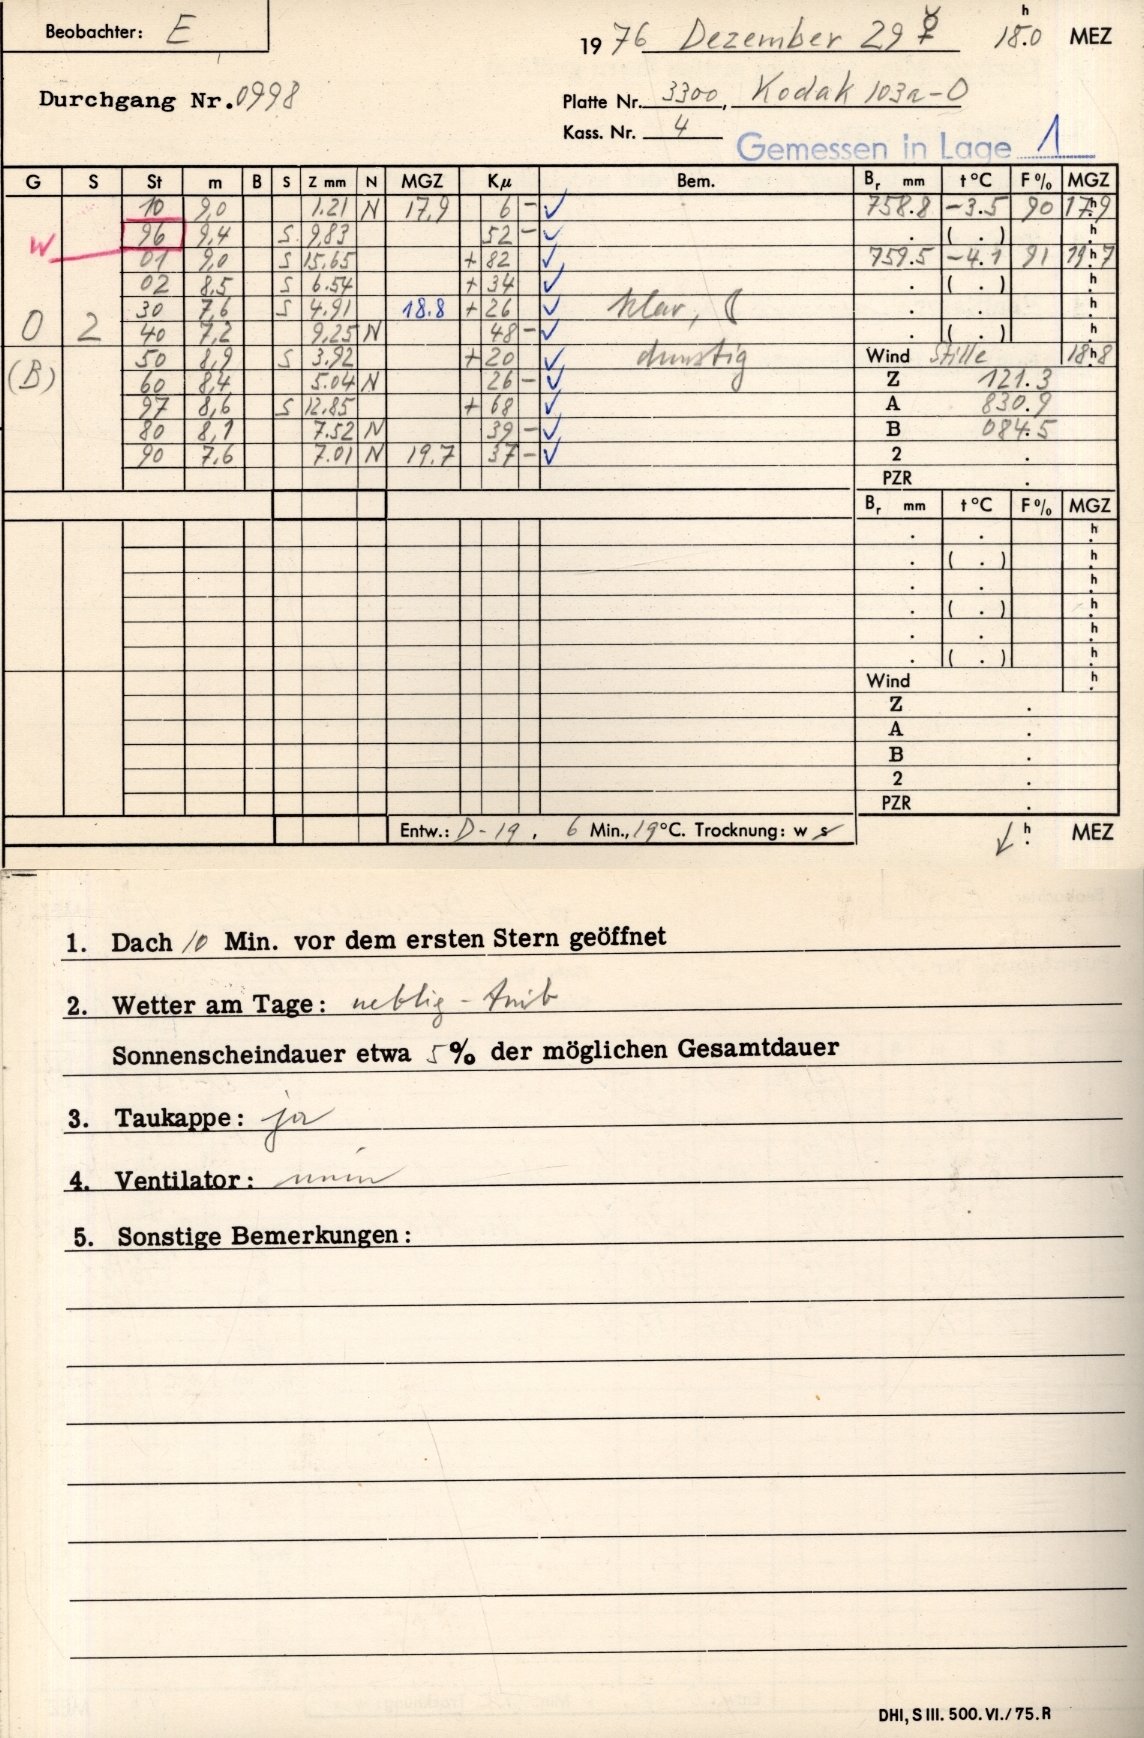 Beobachter: E
1976 Dezember 29 ☿ 18h.0 MEZ
Durchgang Nr. 0998
Platte Nr. 3300, Kodak 103a-O
Kass. Nr. 4
Gemessen in Lage 1
G S St m B S Z mm N MGZ Kμ Bem. Br mm t °C F % MGZ
10 9,0 1.21 N 17,9 6 - ✓ 758.8 -3.5 90 17h9
W 96 9,4 S 9,83 52 - ✓ . ( . ) h
01 9,0 S 15,65 + 82 ✓ 759.5 -4.1 91 19h7
02 8,5 S 6.54 + 34 ✓ . ( . ) h
30 7,6 S 4.91 18.8 + 26 ✓ klar, . . h
0 2 40 7,2 9,25 N 48 - ✓ . ( . ) h
(B) 50 8,9 S 3.92 + 20 ✓ dunstig Wind Stille 18h8
60 8,4 5.04 N 26 - ✓ Z 121.3
97 8,6 S 12.85 + 68 ✓ A 830.9
80 8,1 7.52 N 39 - ✓ B 084.5
90 7,6 7.01 N 19.7 37 - ✓ 2 .
PZR .
Br mm t °C F % MGZ
. . h
. ( . ) h
. . h
. ( . ) h
. . h
. ( . ) h
Wind h
Z .
A .
B .
2 .
PZR .
Entw.: D-19, 6 Min., 19°C. Trocknung: w s h MEZ
1. Dach 10 Min. vor dem ersten Stern geöffnet
2. Wetter am Tage: neblig - trüb
Sonnenscheindauer etwa 5% der möglichen Gesamtdauer
3. Taukappe: ja
4. Ventilator: nein
5. Sonstige Bemerkungen:
DHI, S III. 500. VI./75. R